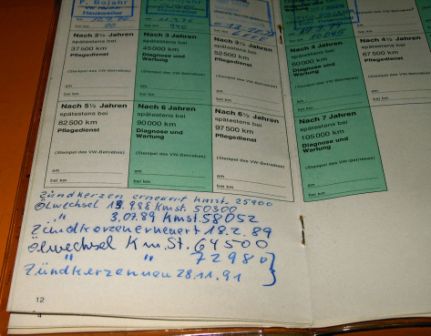 P. Bojahr
Nach 2½ Jahren
spätestens bei
37500 km
Pflegedienst
(Stempel des VW-Betriebes)
am
bei km
Nach 3 Jahren
spätestens bei
45000 km
Diagnose und
Wartung
(Stempel des VW-Betriebes)
am
bei km
spätestens bei
52500 km
Pflegedienst
am
bei km
Nach 4 Jahren
spätestens bei
60000 km
Diagnose und
Wartung
am
bei km
Nach 4½ Jahren
spätestens bei
67500 km
Pflegedienst
(Stempel des VW-Betriebes)
am
bei km
Nach 5½ Jahren
spätestens bei
82500 km
Pflegedienst
(Stempel des VW-Betriebes)
am
bei km
Nach 6 Jahren
spätestens bei
90000 km
Diagnose und
Wartung
(Stempel des VW-Betriebes)
am
bei km
Nach 6½ Jahren
spätestens bei
97500 km
Pflegedienst
(Stempel des VW-Betriebes)
am
bei km
Nach 7 Jahren
spätestens bei
105000 km
Diagnose und
Wartung
(Stempel des VW-Betriebes)
am
bei km
Zündkerzen erneuert kmst. 25900
Ölwechsel kmst. 50300
" 3.07.89 kmst. 58052
Zündkerzen erneuert 18.2.89
Ölwechsel Km.St. 64500
" " 72980
Zündkerzen neu 28.11.91
12